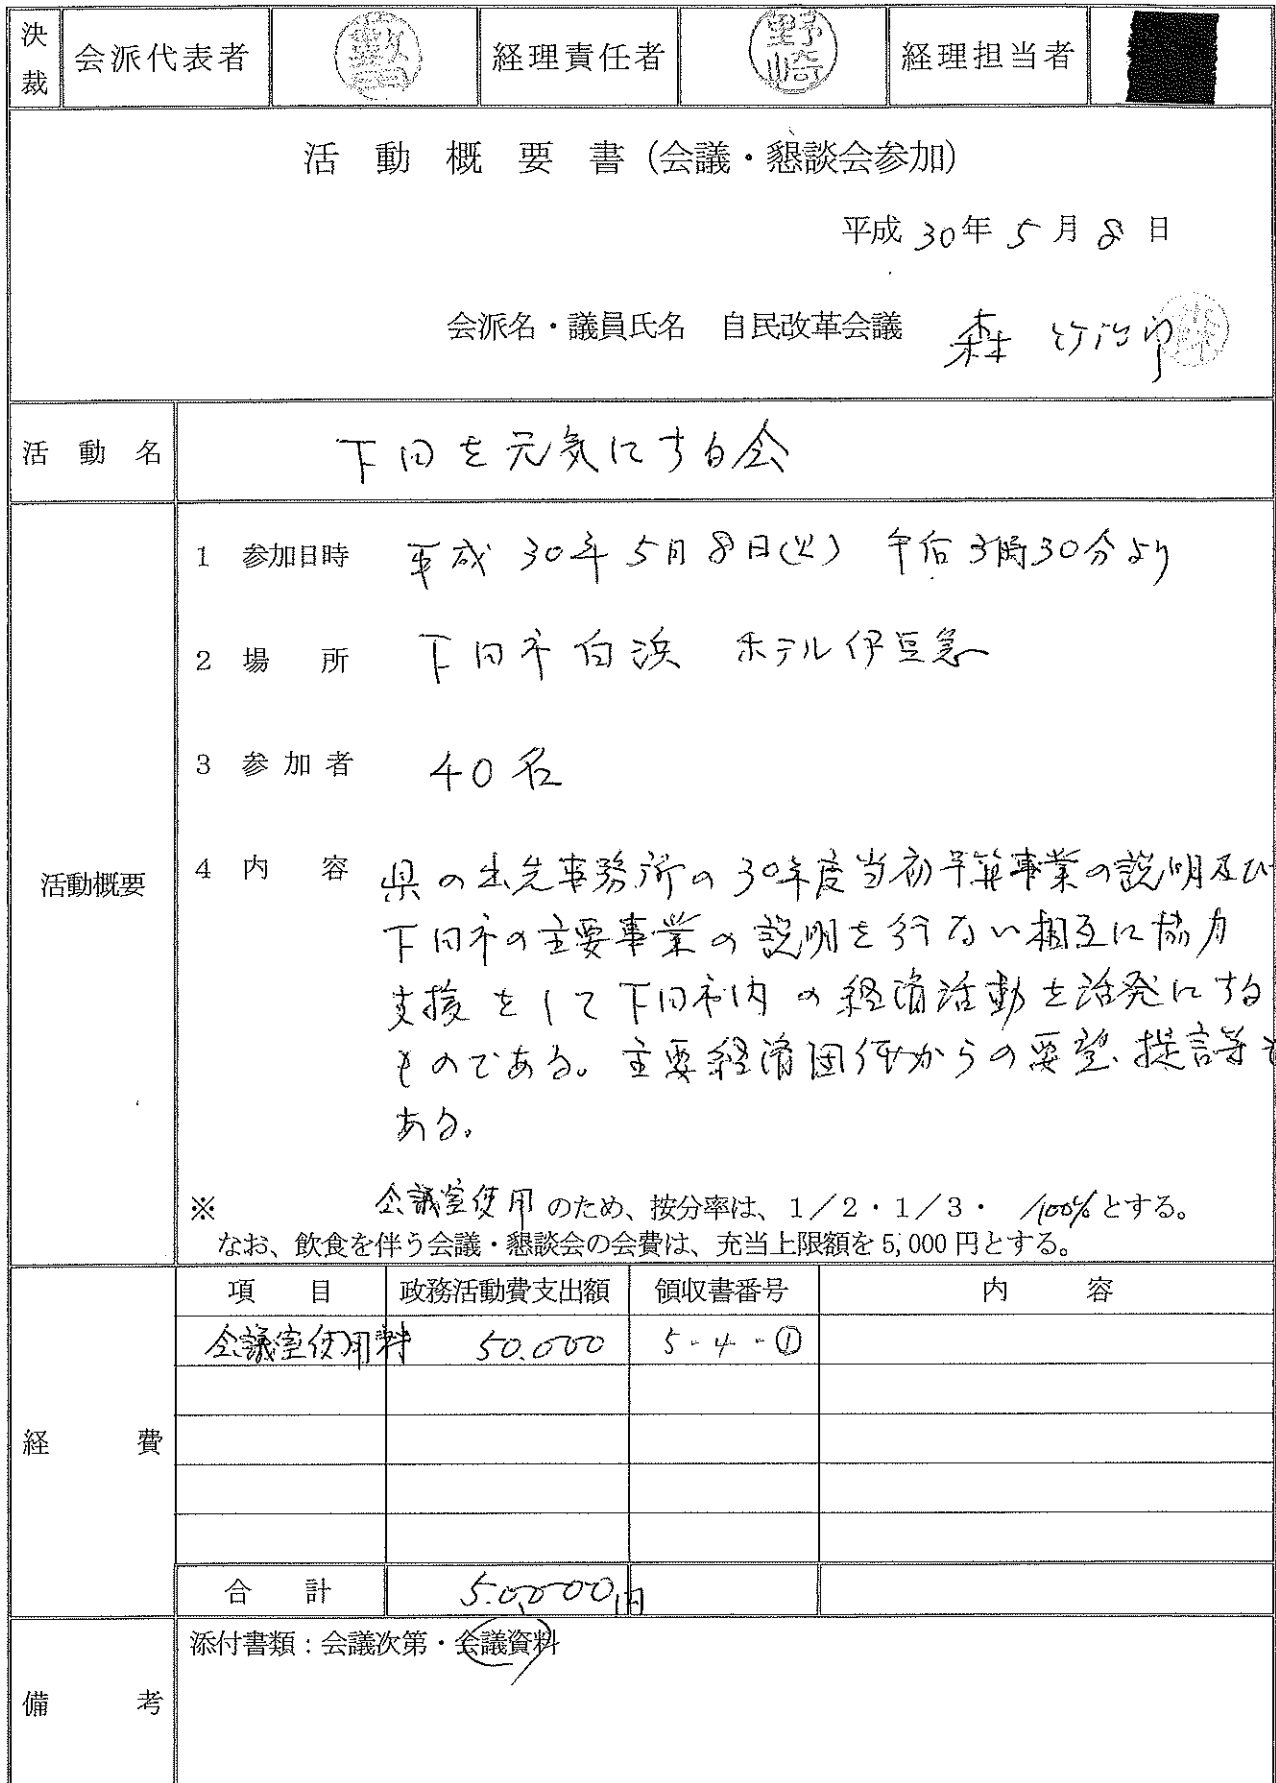 決裁 会派代表者 経理責任者 野崎 経理担当者
活動概要書(会議・懇談会参加)
平成30年5月8日
会派名・議員氏名 自民改革会議 森 竹治郎
活動名 下田を元気にする会
活動概要
1 参加日時 平成30年5月8日(火) 午后3時30分より
2 場所 下田市白浜 ホテル伊豆急
3 参加者 40名
4 内容 県の出先事務所の30年度当初予算事業の説明及び
下田市の主要事業の説明を行ない相互に協力
支援をして下田市内の経済活動を活発にする
ものである。主要経済団体からの要望、提言等も
ある。
※ 会議室使用のため、按分率は、1/2・1/3・ 100%とする。
なお、飲食を伴う会議・懇談会の会費は、充当上限額を5,000円とする。
経費
項目 政務活動費支出額 領収書番号 内容
会議室使用料 50.000 5-4-①
合計 50,000円
備考
添付書類:会議次第・会議資料